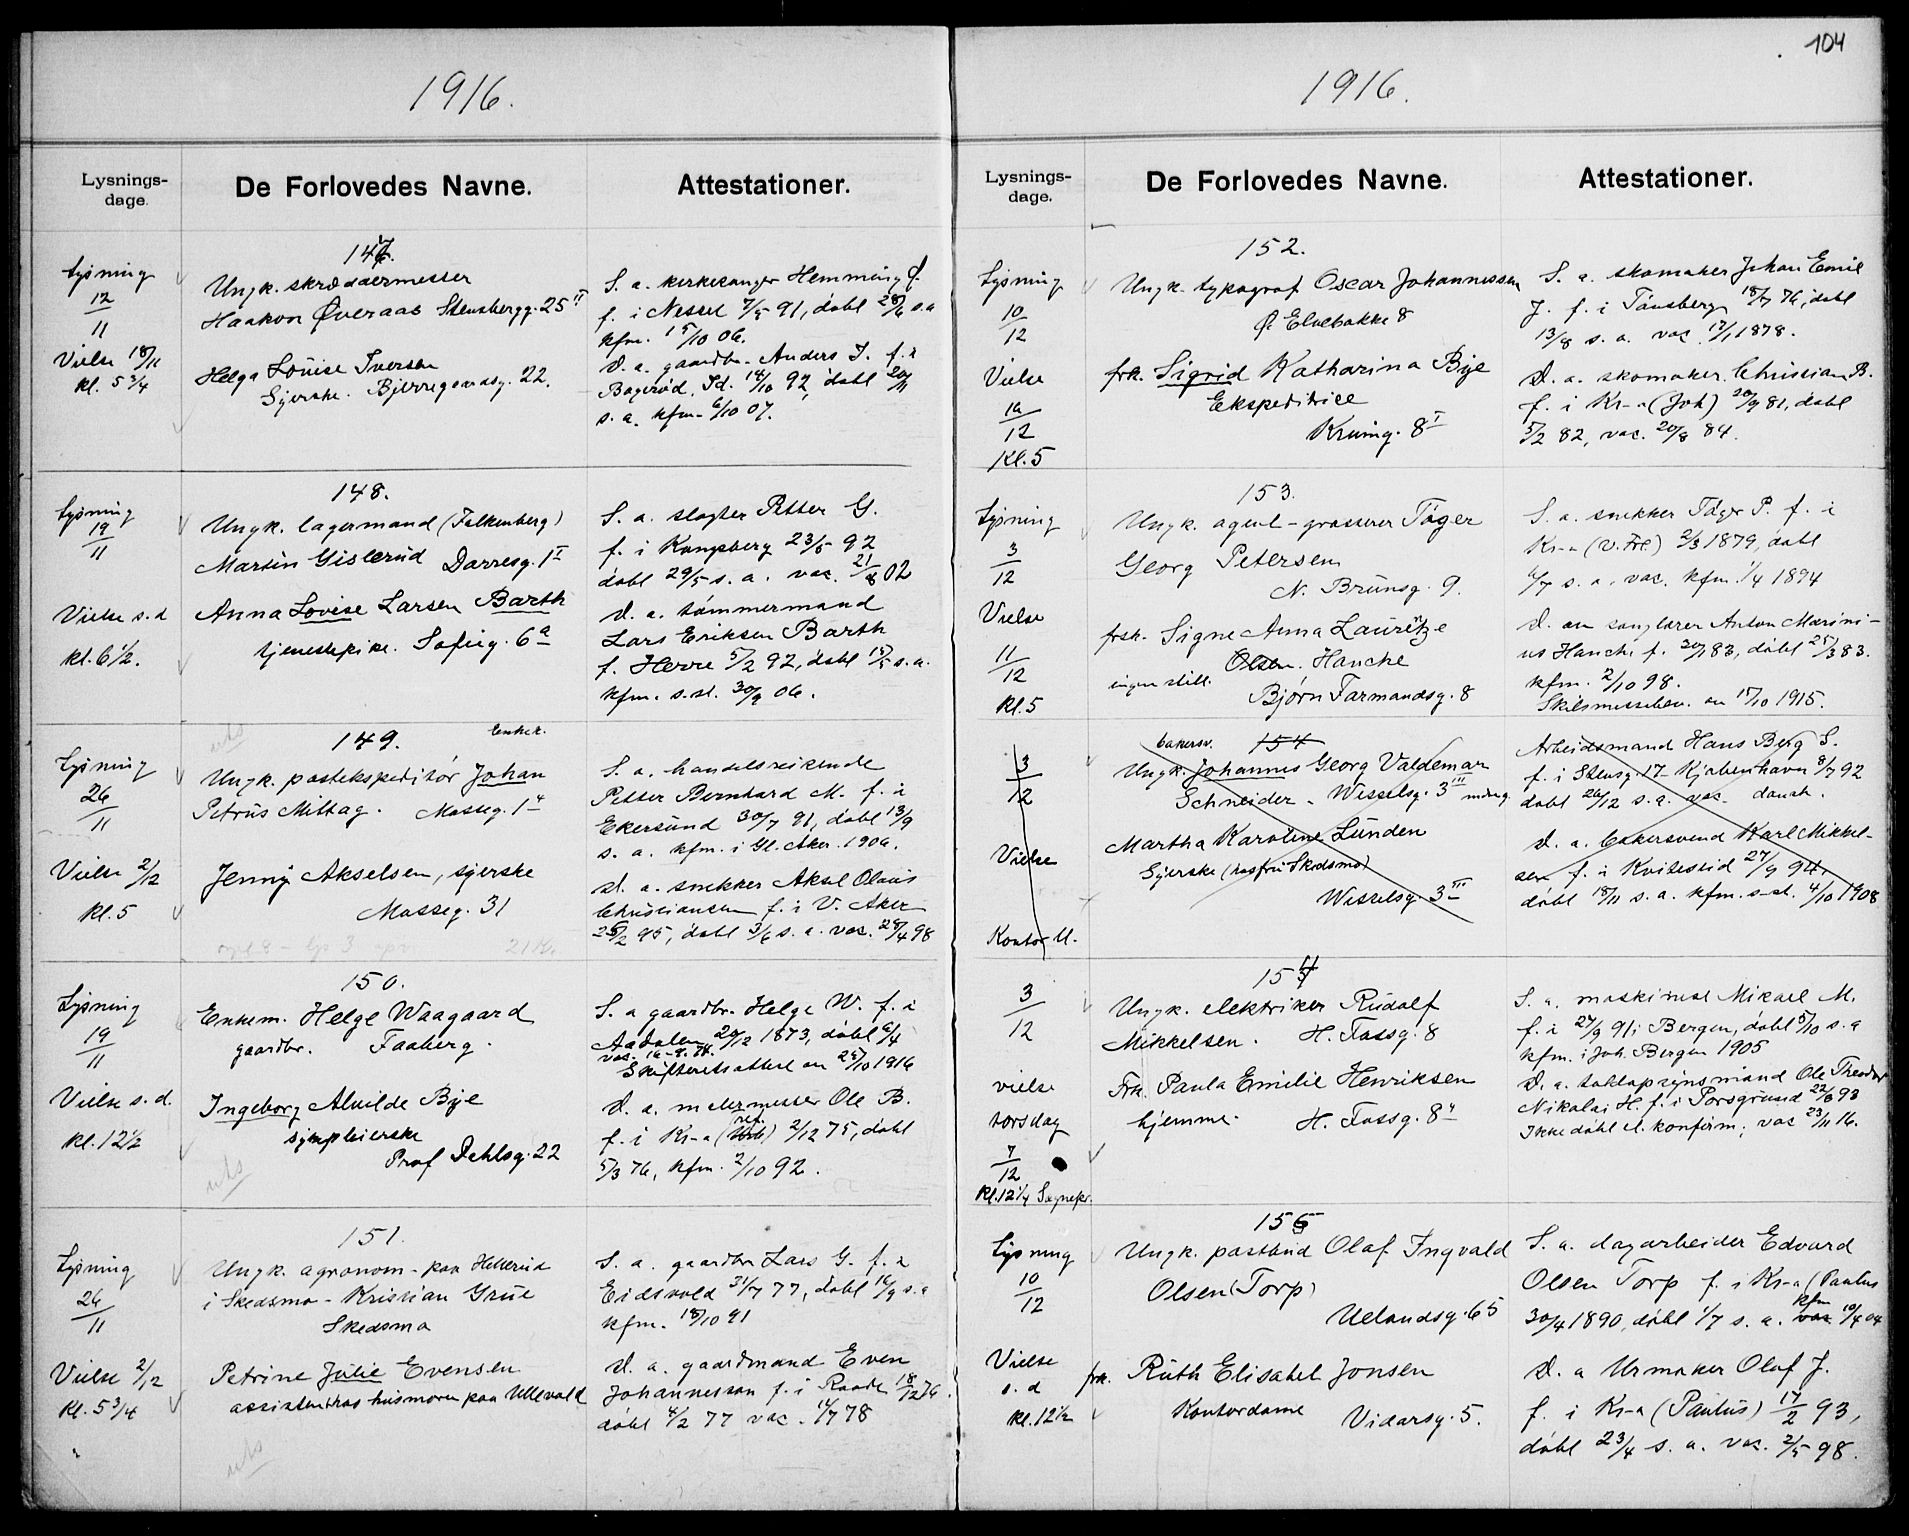 104
1916.
Lysnings-
dage.
De Forlovedes Navne.
Attestationer.
147.
Lysning
12
11
Vielse 18/11
kl. 5 3/4
Ungk. skræddermester
Haakon Øveraas Stensbergg. 25 II
Helga Louise Iversen
Syerske. Bjerregaardsg. 22.
S. a. kirkesanger Hemming Ø.
f. i Nesset 7/5 91, døbt 28/6 s.a
kfm. 15/10 06.
D. a. gaardbr. Anders I. f. i
s. a. kfm. 6/10 07.
148.
Lysning
19
11
Vielse s. d
kl. 6 1/2.
Ungk. lagermand (Falkenberg)
Martin Gislerud Darresg. 1 I
Anna Lovise Larsen Barth
tjenestepike. Sofieg. 6 a
S. a. slagter Petter G.
f. i Kongsberg 23/5 92
døbt 29/5 s. a. vac. 21/8 02
D. a. tømmermand
Lars Eriksen Barth
f. Herre 5/2 92, døbt 15/5 s. a.
kfm. s. st. 30/9 06.
149.
Lysning
26
11
Vielse 2/12
kl. 5
Ungk. postekspeditør Johan
Petrus Mittag. Mosseg. 1
Jenny Akselsen, syerske
Mosseg. 31
S. a. handelsreisende
Petter Bernhard M. f. i
Ekersund 30/7 91, døbt 13/9
s. a. kfm. i Gl. Aker 1906.
D. a. snekker Aksel Olaus
Christiansen f. i V. Aker
25/2 95, døbt 3/6 s. a. vac. 28/4 98
150.
Lysning
19
11
Vielse s. d.
kl. 12 1/2
Enkem. Helge Waagaard
gaardbr. Faaberg.
Ingeborg Alvilde Bye
Prof Dehlsg. 22
S. a gaardbr. Helge W. f. i
Aadalen 20/12 1873, døbt 6/4
Skifteretsattest av 25/10 1916
D. a. malermester Ole B.
f. i Kr-a 2/12 75, døbt
5/3 76, kfm. 2/10 92.
151.
Lysning
26
11
Vielse 2/12
kl. 5 3/4
Ungk. agronom - paa Hellerud
i Skedsmo - Kristian Grue
Skedsmo
Petrine Julie Evensen
assistent hos husmoren paa Ullevold
S. a. gaardbr Lars G. f. i
Eidsvold 31/7 77, døbt 16/9 s. a
kfm. 18/10 91
D. a. gaardmand Even
Johannesson f. i Raade 18/12 76.
døbt 4/2 77 vac. 14/7 78
1916.
Lysnings-
dage.
De Forlovedes Navne.
Attestationer.
152.
Lysning
10
12
Vielse
16
12
Kl. 5
Ungk. typograf Oscar Johannessen
Ø. Elvebakke 8
frk. Sigrid Katharina Bye
Ekspeditrice
Krumg. 8 I
S. a. skomaker Johan Emil
J. f. i Tønsberg 18/7 76, døbt
13/8 s. a. vac. 17/1 1878.
D. a. skomaker Christian B.
f. i Kr-a (Joh) 30/9 81, døbt
5/2 82, vac. 20/8 84.
153.
Lysning
3
12
Vielse
11
12
Kl. 5
Ungk. agent-grosserer Tøger
Georg Petersen
N. Brunsg. 9.
frsk. Signe Anna Lauritze
Olsen. Hanche
ingen still.
Bjørn Farmandsg. 8
S. a. snekker Tøger P. f. i
Kr-a (V. Frl) 2/3 1879, døbt
6/7 s. a. vac. kfm. 1/4 1894
D. av sanglærer Anton Marini-
us Hanche f. 30/1 83, døbt 25/3 83.
kfm. 2/10 98.
Skilsmissebev. av 15/10 1915.
154
3
12
Vielse
Kontor U.
bakersv.
Ungk. Johannes Georg Valdemar
Schneider. Wesselsg. 3 III
Martha Karoline Lunden
Syerske
Wesselsg. 3 III
Arbeidsmand Hans Berg S.
f. i Stensg. 17 Kjøbenhavn 8/7 92
døbt 26/12 s. a. vac. dansk.
D. a. bakersvend Karl Mikkel-
sen f. i Kviteseid 27/9 94,
døbt 18/11 s. a. kfm. s. st. 4/10 1908
154
3
12
vielse
torsdag
7
12
Kl. 12 1/4 Sognepr.
Ungk. elektriker Rudolf
Mikkelsen. H. Fossg. 8
Frk. Paula Emilie Henriksen
hjemme. H. Fossg. 8
S. a. maskinist Mikael M.
f. i 27/9 91 i Bergen, døbt 5/10 s. a
kfm. i Joh. Bergen 1905
D. a. toldopsynsmand Ole Theodor
Nikolai H. f. i Porsgrund 22/8 93
Ikke døbt el. konfirm; vac 23/11 16.
155
Lysning
10
12
Vielse
s. d
kl. 12 1/2
Ungk. postbud Olaf Ingvald
Olsen (Torp)
Uelandsg. 65
frk. Ruth Elisabet Jonsen
Kontordame Vidarsg. 5.
S. a. dagarbeider Edvard
Olsen Torp f. i Kr-a (Paulus
30/4 1890, døbt 1/7 s. a. kfm vac 10/4 04
D. a Urmaker Olaf J.
f. i Kr-a (Paulus) 17/2 93,
døbt 23/4 s. a. vac. 2/5 98.